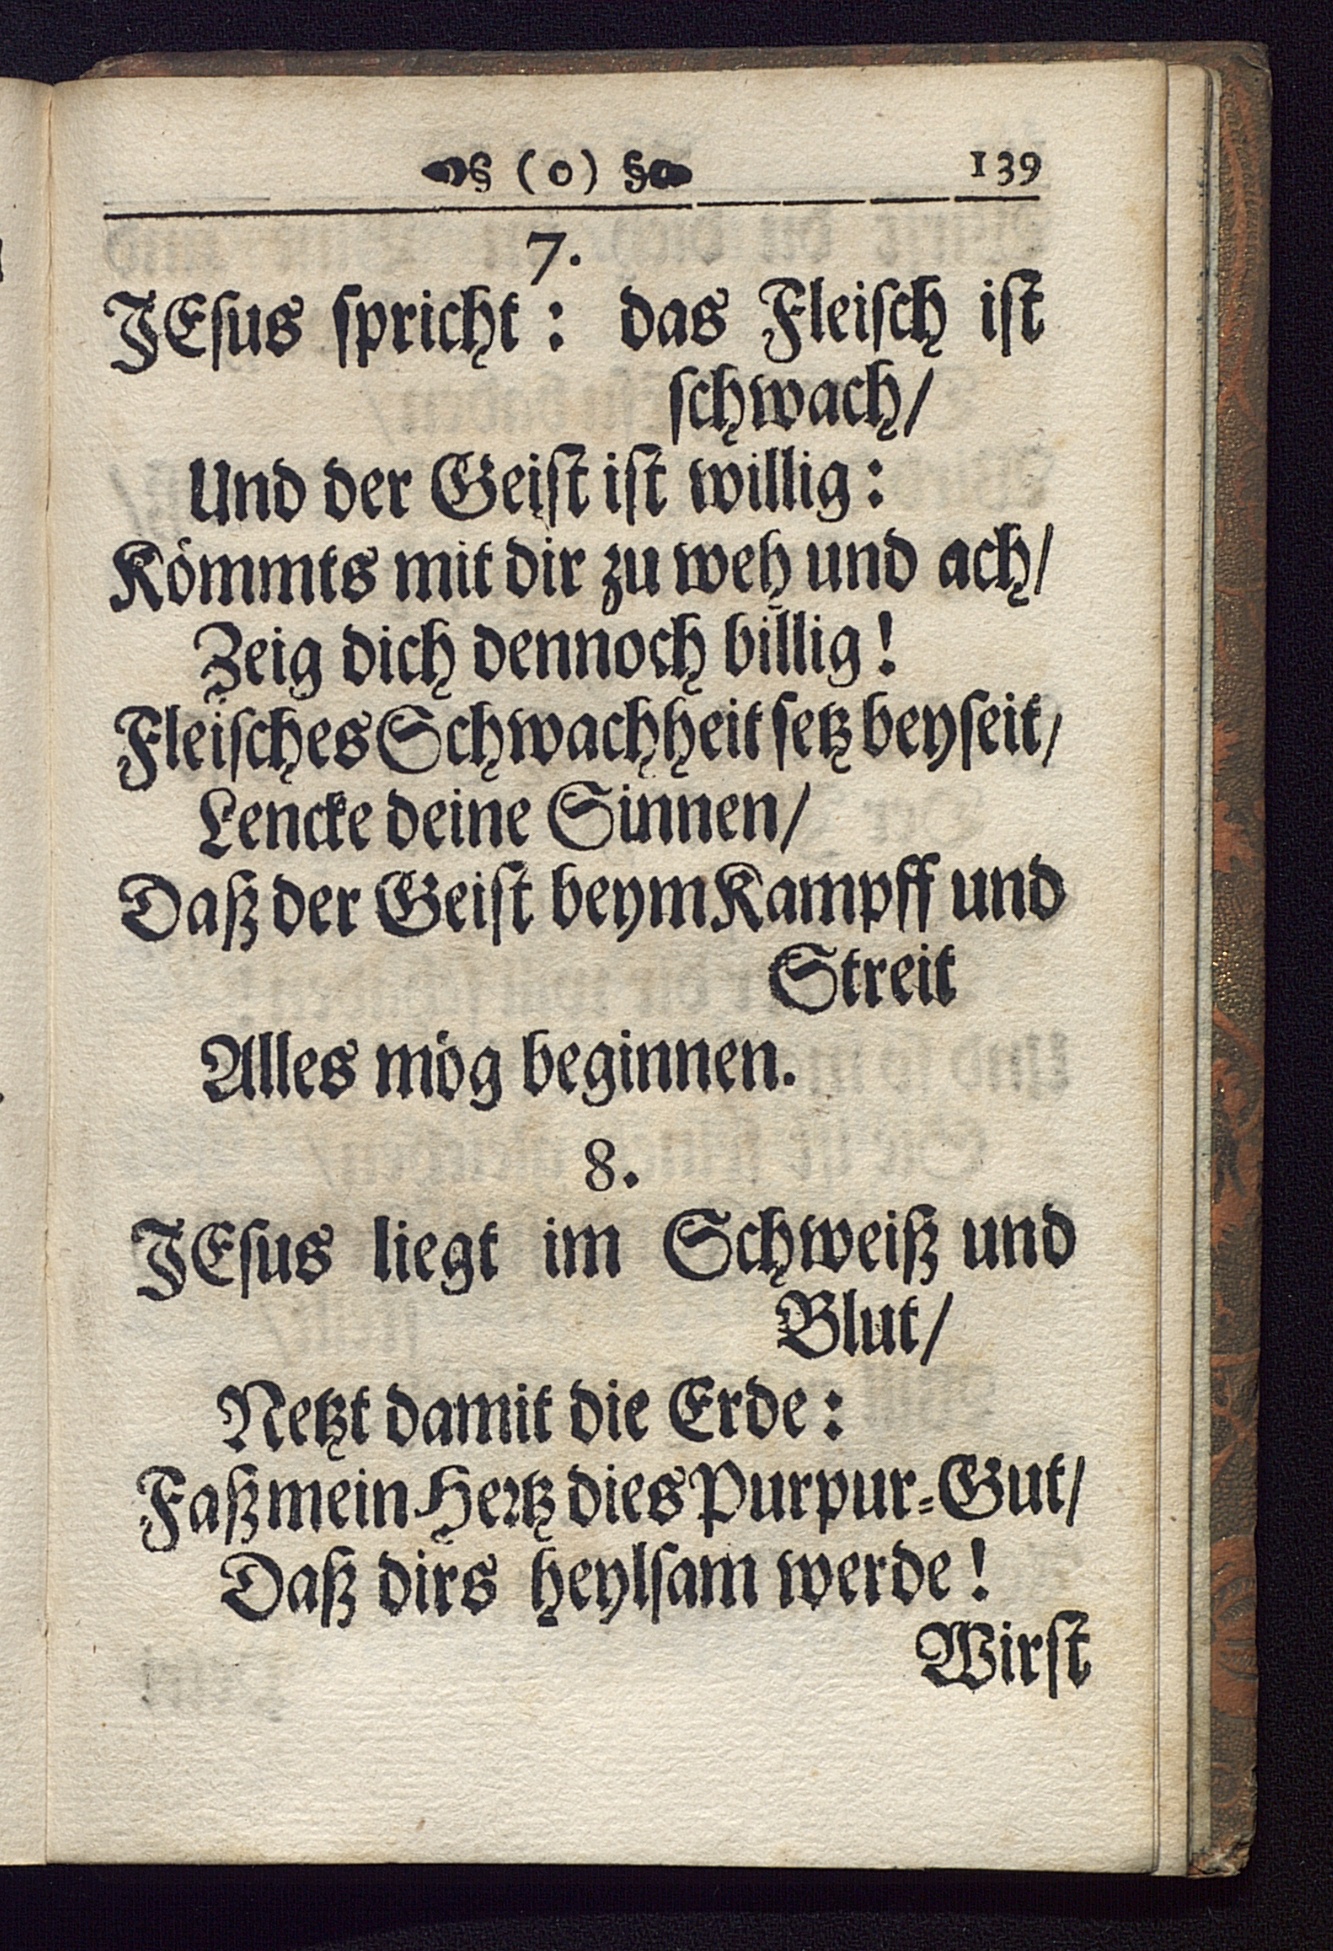 § (0) § 139
7.
JEſus ſpricht: das Fleiſch iſt
ſchwach/
Und der Geiſt iſt willig:
Kömmts mit dir zu weh und ach/
Zeig dich dennoch billig!
Fleiſches Schwachheit ſetz beyſeit/
Lencke deine Sinnen/
Daß der Geiſt beym Kampff und
Streit
Alles mög beginnen.
8.
JEſus liegt im Schweiß und
Blut/
Netzt damit die Erde:
Faß mein Hertz dies Purpur-Gut/
Daß dirs heylſam werde!
Wirſt